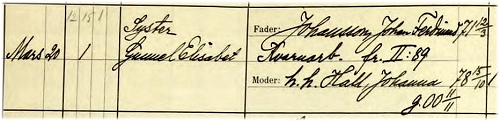 12 15 1
Syster
Fader: Johansson, Johan Ferdinand 71 12/3
Mars 20 1 Gunnel Elisabet
Kvarnarb. fr. II: 89
Moder: h. h. Häll, Johanna 78 15/10 1
g. 00 11/11